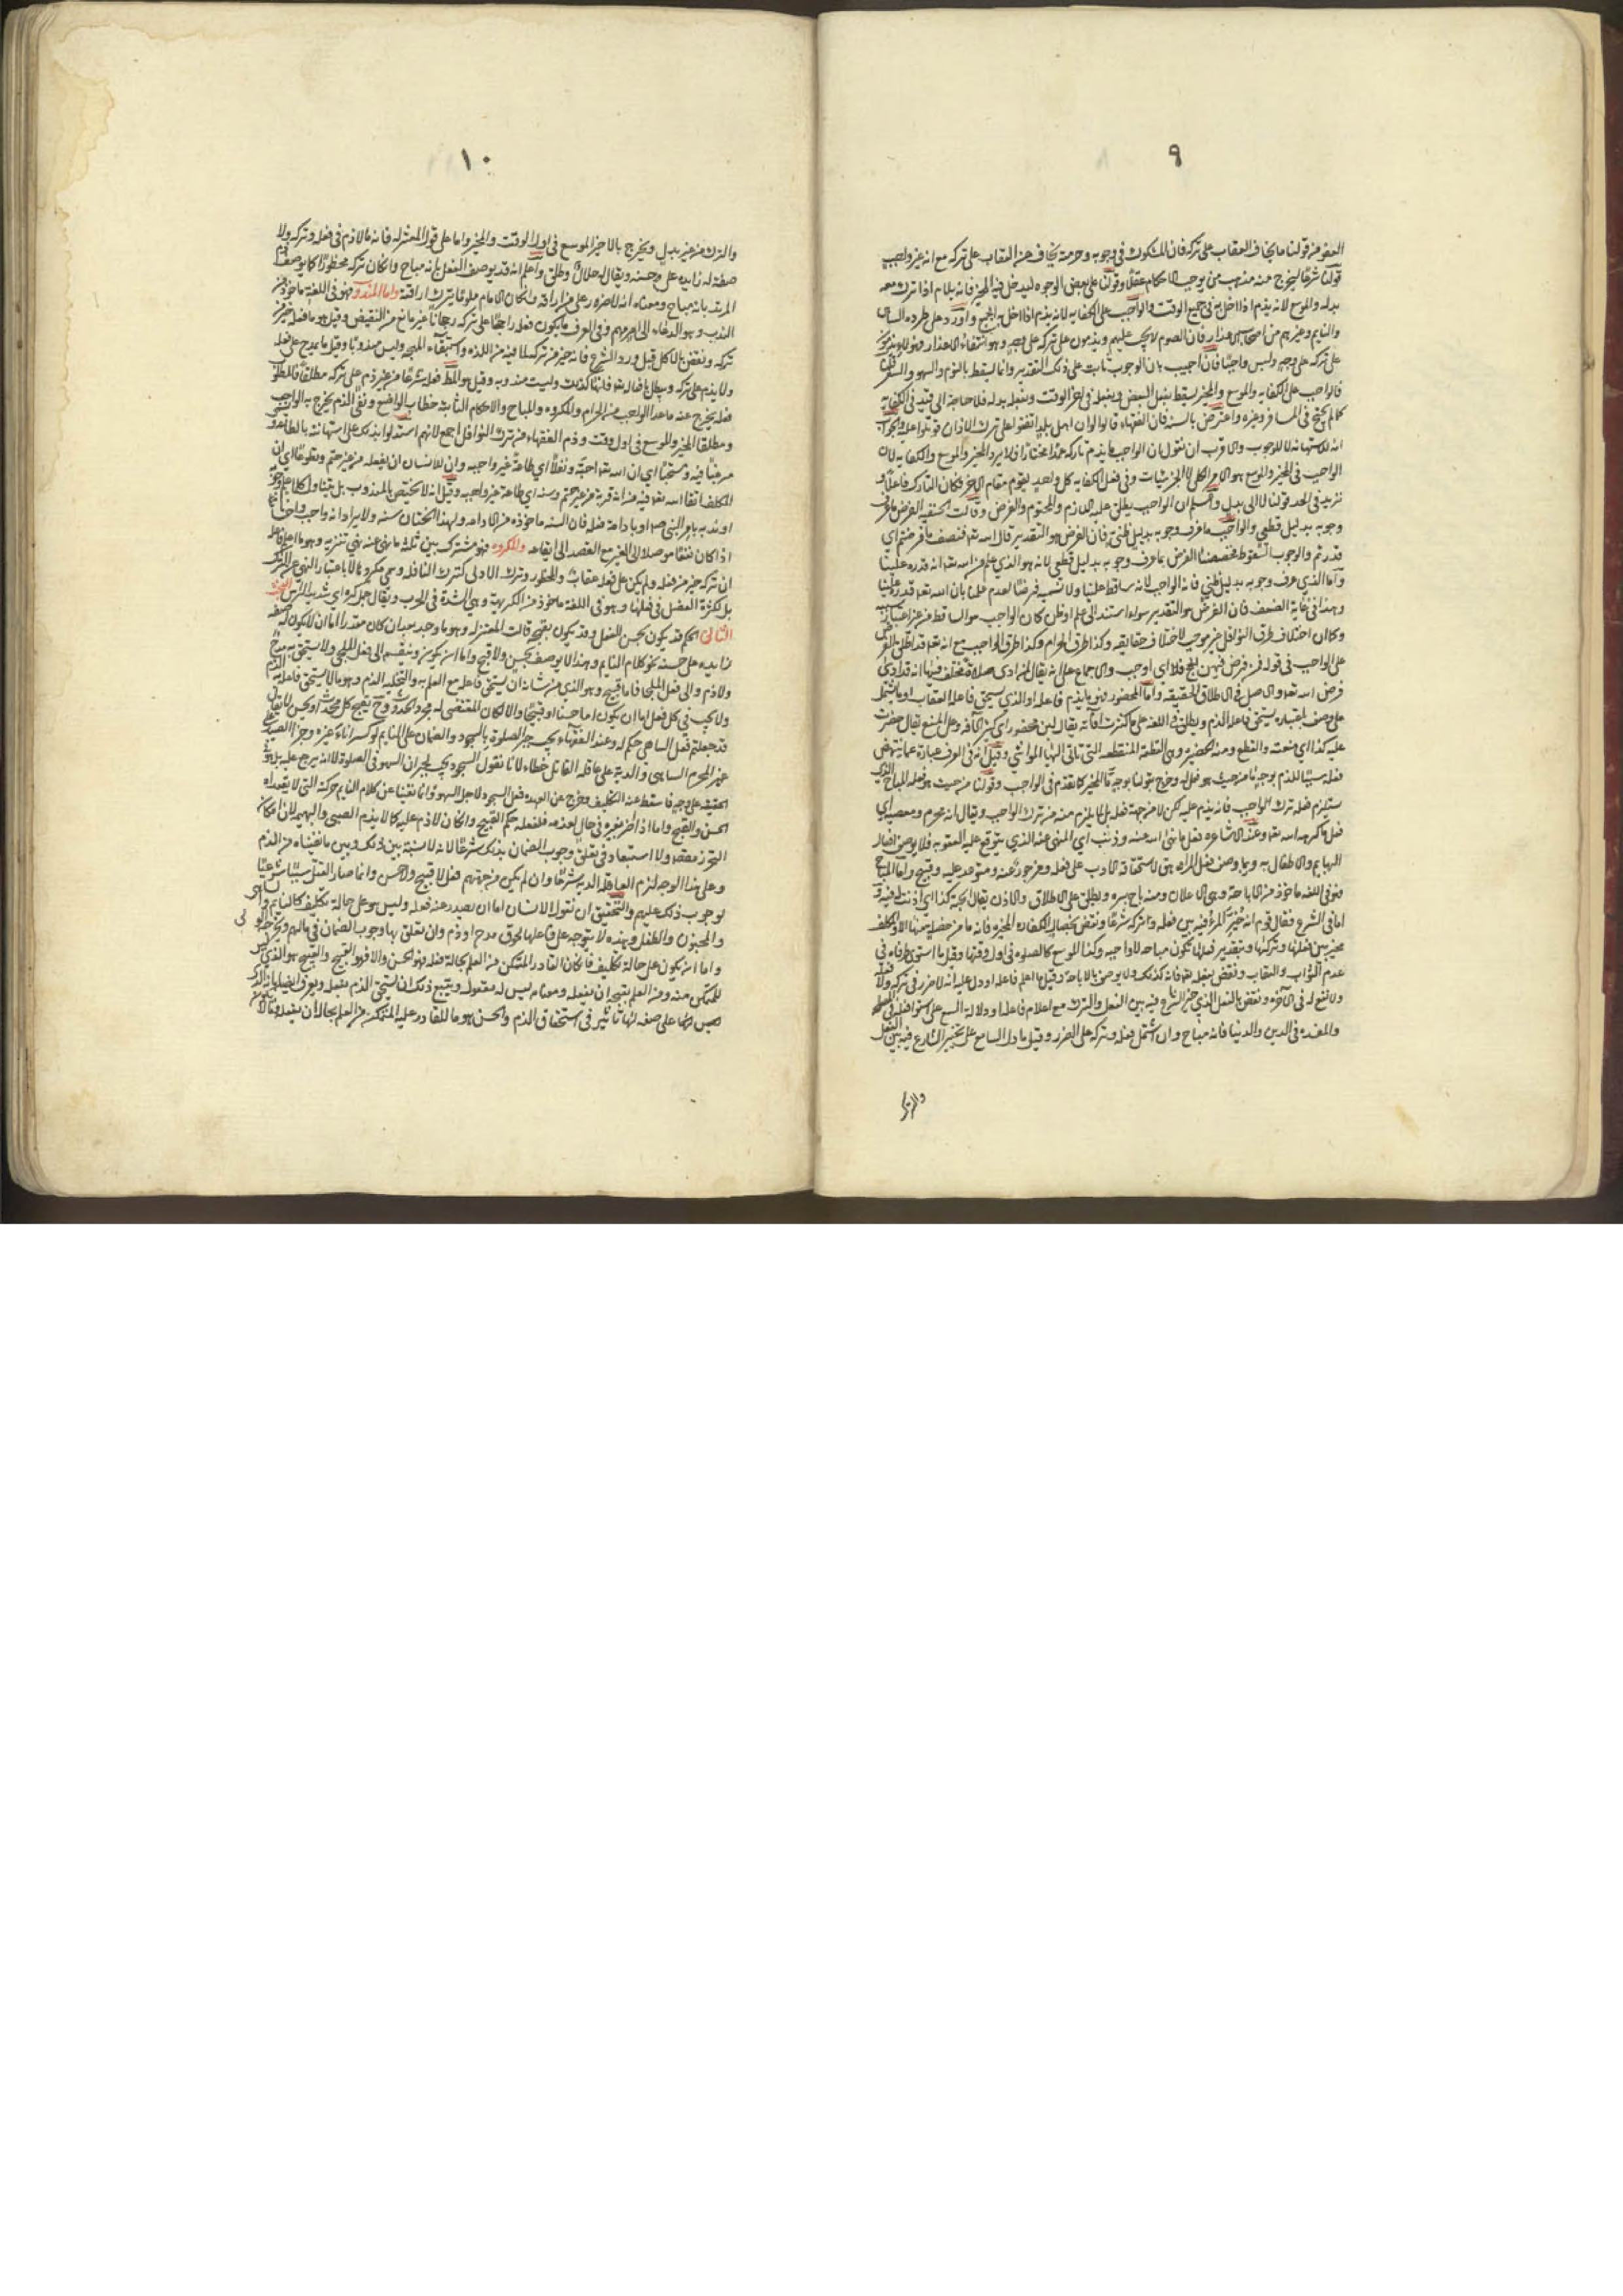 ٩
العفو من قولنا ما يخاف العقاب على تركه فان المشكوك في وجوبه وحرمته يخاف من العقاب على تركه مع انه غير واجب
قولنا شرعا ليخرج منه مذهب من يوجب الاحكام عقلا وقولنا على بعض الوجوه ليدخل فيه المخير فانه يلام اذا ترك معه
بدله والموسع لانه يذم اذا اخل به في جميع الوقت والواجب على الكفايه لانه يذم اذا اخل به الجميع واورد على طرده الساهي
والنايم وغيرهم من اصحاب الاعذار فان الصوم لا يجب عليهم ويذمون على تركه على وجه وهو انتفاء الاعذار
على تركه على وجه وليس واجبا فان اجيب بان الوجوب ثابت على ذلك التقدير وانما يسقط بالنوم والسهو والسفر قلنا
فالواجب على الكفايه والموسع والمخير يسقط بفعل البعض وبفعله في اخر الوقت وبفعل بدله فلا حاجة الى قيد في الكفايه
كما لم يحتج في المسافر وغيره واعترض بالسنه فان الفقهاء قالوا لو ان اهل بلد اتفقوا على ترك الاذان قوتلوا عليه والجواب
انه للاستهانه لا للوجوب والاقرب ان نقول ان الواجب ما يذم تاركه عمدا مختارا فلا يرد المخير والموسع والكفايه لان
الواجب في المخير والموسع هو الامر الكلي لا الجزئيات وفي فعل الكفايه كل واحد يقوم مقام الاخر فكان التارك فاعلا او
نزيد في الحد قولنا لا الى بدل واعلم ان الواجب يطلق عليه اللازم والمحتوم والفرض وقالت الحنفيه الفرض ما عرف
وجوبه بدليل قطعي والواجب ما عرف وجوبه بدليل ظني فان الفرض هو التقدير قال الله تعالى فنصف ما فرضتم اي
قدرتم والوجوب السقوط فخصصنا الفرض بما عرف وجوبه بدليل قطعي لانه هو الذي علم من الله تعالى انه قدره علينا
واما الذي عرف وجوبه بدليل ظني فانه الواجب لانه ساقط علينا ولا نسميه فرضا لعدم علمنا بان الله تعالى قدره علينا
وهذا في غاية الضعف فان الفرض هو التقدير سواء استند الى علم او ظن كما ان الواجب هو الساقط من غير اعتبار سببه
وكما ان اختلاف طرق النوافل غير موجب لاختلاف حقايقه وكذا طرق الحرام وكذا طرق الواجب مع انه تعالى قد اطلق الفرض
على الواجب في قوله فمن فرض فيهن الحج اي اوجب والاجماع على انه يقال لمن ادى صلاة مختلف فيها انه قد ادى
فرض الله تعالى والاصل في الاطلاق الحقيقه واما المحضور فهو ما يذم فاعله او الذي يستحق فاعله العقاب او ما يشتمل
على وصف باعتباره يستحق فاعله الذم ويطلق في اللغه على ما كثرت آفاته يقال لبن محضور اي كثير الآفه وعلى المنع يقال حضرت
عليه كذا اي منعته والقطع ومنه الحضيره وهي القطعه المنقطعه التي تاتي اليها المواشي وقيل انه في العرف عبارة عما ينتهض
فعله سببا للذم بوجه ما من حيث هو فعل له وخرج بقولنا بوجه ما المخير كما تقدم في الواجب وقولنا من حيث هو فعله المباح الذي
يستلزم فعله ترك الواجب فانه يذم عليه لكن لا من جهة فعله بل لما يلزم منه من ترك الواجب ويقال انه محرم ومعصيه اي
فعل ما كرهه الله تعالى وعند الاشاعره فعل ما نهى الله عنه وذنب اي المنهى عنه الذي يتوقع عليه العقوبه فلا يوصف افعال
البهايم والاطفال به وربما وصف فعل المراهق لاستحقاقه الادب على فعله ومزجور عنه ومتوعد عليه وقبيح واما المباح
فهو في اللغه ماخوذ من الاباحة وهي الاعلان ومنه باح بسره ويطلق على الاطلاق والاذن يقال ابحته كذا اي اذنت له فيه
اما في الشرع فقال قوم انه ما خير المرء فيه بين فعله وتركه شرعا ونقض بخصال الكفاره المخيره فانه ما من خصله منها الا والمكلف
مخير بين فعلها وتركها وبتقدير فعلها تكون مباحه لا واجبه وكذا الموسع كالصلوه في اول وقتها وقيل ما استوى طرفاه في
عدم الثواب والعقاب ونقض بفعله تعالى فانه كذلك ولا يوصف بالاباحة وقيل ما اعلم فاعله او دل عليه انه لا ضرر في تركه ولا فعله
ولا نفع له في الآخره ونقض بالفعل الذي خير الشارع فيه بين الفعل والترك مع اعلام فاعله او دلالة السمع على استوا فعله في المصلحه
والمفسده في الدين والدنيا فانه مباح وان اشتمل فعله وتركه على الضرر وقيل ما دل السامع على تخيير الشارع فيه بين الفعل
والترك
١٠
والترك من غير بدل ويخرج بالاخير الموسع في اول الوقت والمخير واما على قول المعتزله فانه ما لا ذم في فعله وتركه ولا
صفة له زايده على حسنه ويقال له حلال وطلق واعلم انه قد يوصف الفعل بانه مباح وان كان تركه محظورا كما يوصف دم
المرتد بانه مباح ومعناه انه لا ضرر على من اراقه وان كان الامام ملوما بترك اراقته واما المندوب فهو في اللغه ماخوذ من
الندب وهو الدعاء الى امر مهم وفي العرف ما يكون فعله راجحا على تركه رجحانا غير مانع من النقيض وقيل هو ما فعله خير من
تركه ونقض بالاكل قبل ورود الشرع فانه خير من تركه لما فيه من اللذه واستبقاء المهجه وليس مندوبا وقيل ما يمدح على فعله
ولا يذم على تركه ويبطل بافعاله تعالى فانها كذلك وليست مندوبه وقيل هو المطلوب فعله شرعا من غير ذم على تركه مطلقا فالمطلوب
فعله يخرج عنه ما عدا الواجب من الحرام والمكروه والمباح والاحكام الثابته خطاب الواضع ونفي الذم يخرج به الواجب
ومطلقا المخير والموسع في اول وقت وذم الفقهاء من ترك النوافل اجمع لانهم استدلوا بذلك على استهانته بالطاعه ويسمى
مرغبا فيه ومستحبا اي ان الله تعالى احبه ونفلا اي طاعة غير واجبه وان للانسان ان يفعله من غير حتم وتطوعا اي ان
المكلف انقاد لله تعالى فيه مع انه قربة من غير حتم وسنه اي طاعة غير واجبه وقيل انه لا يختص بالمندوب بل يتناول كل ما علم وجوبه
او ندبه بامر النبي ص او بادامة فعله فان السنه ماخوذه من الادامه ولهذا الختان سنه ولا يراد انه غير واجب واحسانا
اذا كان نفعا موصلا الى الغير مع القصد الى ايقاعه والمكروه فهو مشترك بين ثلثه ما نهى عنه نهي تنزيه وهو ما اعلم فاعله
ان تركه خير من فعله ولم يكن على فعله عقاب والمحظور وترك الاولى كترك النافله ويسمى مكروها لا باعتبار النهي عن الترك
بل لكثرة الفضل في فعلها وهو في اللغه ماخوذ من الكريهة وهي الشدة في الحرب ويقال جمل كره اي شديد الراس البحث
الثاني الحكم قد يكون بحسن الفعل وقد يكون بقبحه قالت المعتزله وهو ما وجد بعد ان كان مقدرا اما ان لا يكون له صفه
زايده على حسنه نحو كلام النايم وهذا لا يوصف بحسن ولا قبح واما ان يكون وينقسم الى فعل الملجى ولا يستحق به مدح
ولا ذم والى فعل المخلى فاما قبيح وهو الذي من شانه ان يستحق فاعله مع العلم به والتخليه الذم وهو ما لا يستحق فاعله به الذم
ولا يجب في كل فعل اما ان يكون اما حسنا او قبيحا والا لكان المقتضي له مجرد الحدوث وح يقبح كل محدث او يحسن لا يقال
قد جعلتم فعل الساهي حكم له وعند الفقهاء يجب جبر الصلوة بالسجود والضمان على النايم لو كسر اناء غيره وجزا الصيد على
غير المحرم الساهي والدية على عاقلة القاتل خطاء لانا نقول السجود يجب لجبران السهو في الصلوة
الحقيقه على وجه فاسقط عنه التكليف وخرج عن العهده فعل السجود لاجل السهو وانما نفينا عن كلام النايم حركته التي لا يقصد اه
الحسن والقبح واما اذا اضر بغيره في حال نومه فلفعله حكم القبيح وان كان لا ذم عليه كما لا يذم الصبي والبهيمه لان امكان
التحرز مفقود ولا استبعاد في تعلق وجوب الضمان بذلك شرعا لانه لا نسبة بين ذلك وبين ما نفيناه من الذم
وعلى هذا الوجه لزم العاقله الديه شرعا وان لم يكن من جهتهم فعل لا قبيح ولا حسن وانما صار القتل سببا شرعيا
لوجوب ذلك عليهم والتحقيق ان نقول الانسان اما ان يصدر عنه فعله وليس هو على حالة تكليف كالنايم والساهي
والمجنون والطفل وبهذه لا يتوجه على فاعلها لحوق مدح او ذم وان تعلق بها وجوب الضمان في مالهم ويخرجه الولي
واما ان يكون على حالة تكليف فان كان القادر المتمكن من العلم بحاله فعله فهو الحسن والا فهو القبيح والقبيح هو الذي ليس
للمتمكن منه ومن العلم بقبحه ان يفعله ومعناه ليس له مفعول ويتبع ذلك ان يستحق الذم بفعله ويعرف ايضا بانه الذي
ليس على صفه لها تاثير في استحقاق الذم والحسن هو ما للقادر عليه المتمكن من العلم بحاله ان يفعله